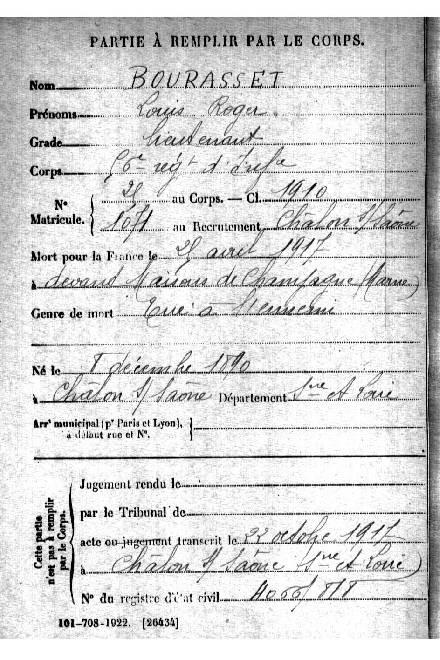 PARTIE À REMPLIR PAR LE CORPS.
Nom BOURASSET
Prénoms Louis Roger
Grade lieutenant
Corps 56e régt d'Infie
No Matricule. { 20 au Corps. — Cl. 1910
1671 au Recrutement Châlon s/Saône
Mort pour la France le 25 avril 1917
à devant Maisons de Champagne (Marne)
Genre de mort Tué à l'ennemi
Né le 8 décembre 1890
à Châlon s/ Saône Département Sne et Loire
Arrt municipal (pr Paris et Lyon), à défaut rue et No.
Cette partie n'est pas à remplir par le Corps.
Jugement rendu le
par le Tribunal de
acte ou jugement transcrit le 22 octobre 1917
à Châlon s/ Saône (Sne et Loire)
No du registre d'état civil
101-708-1922. [26434]